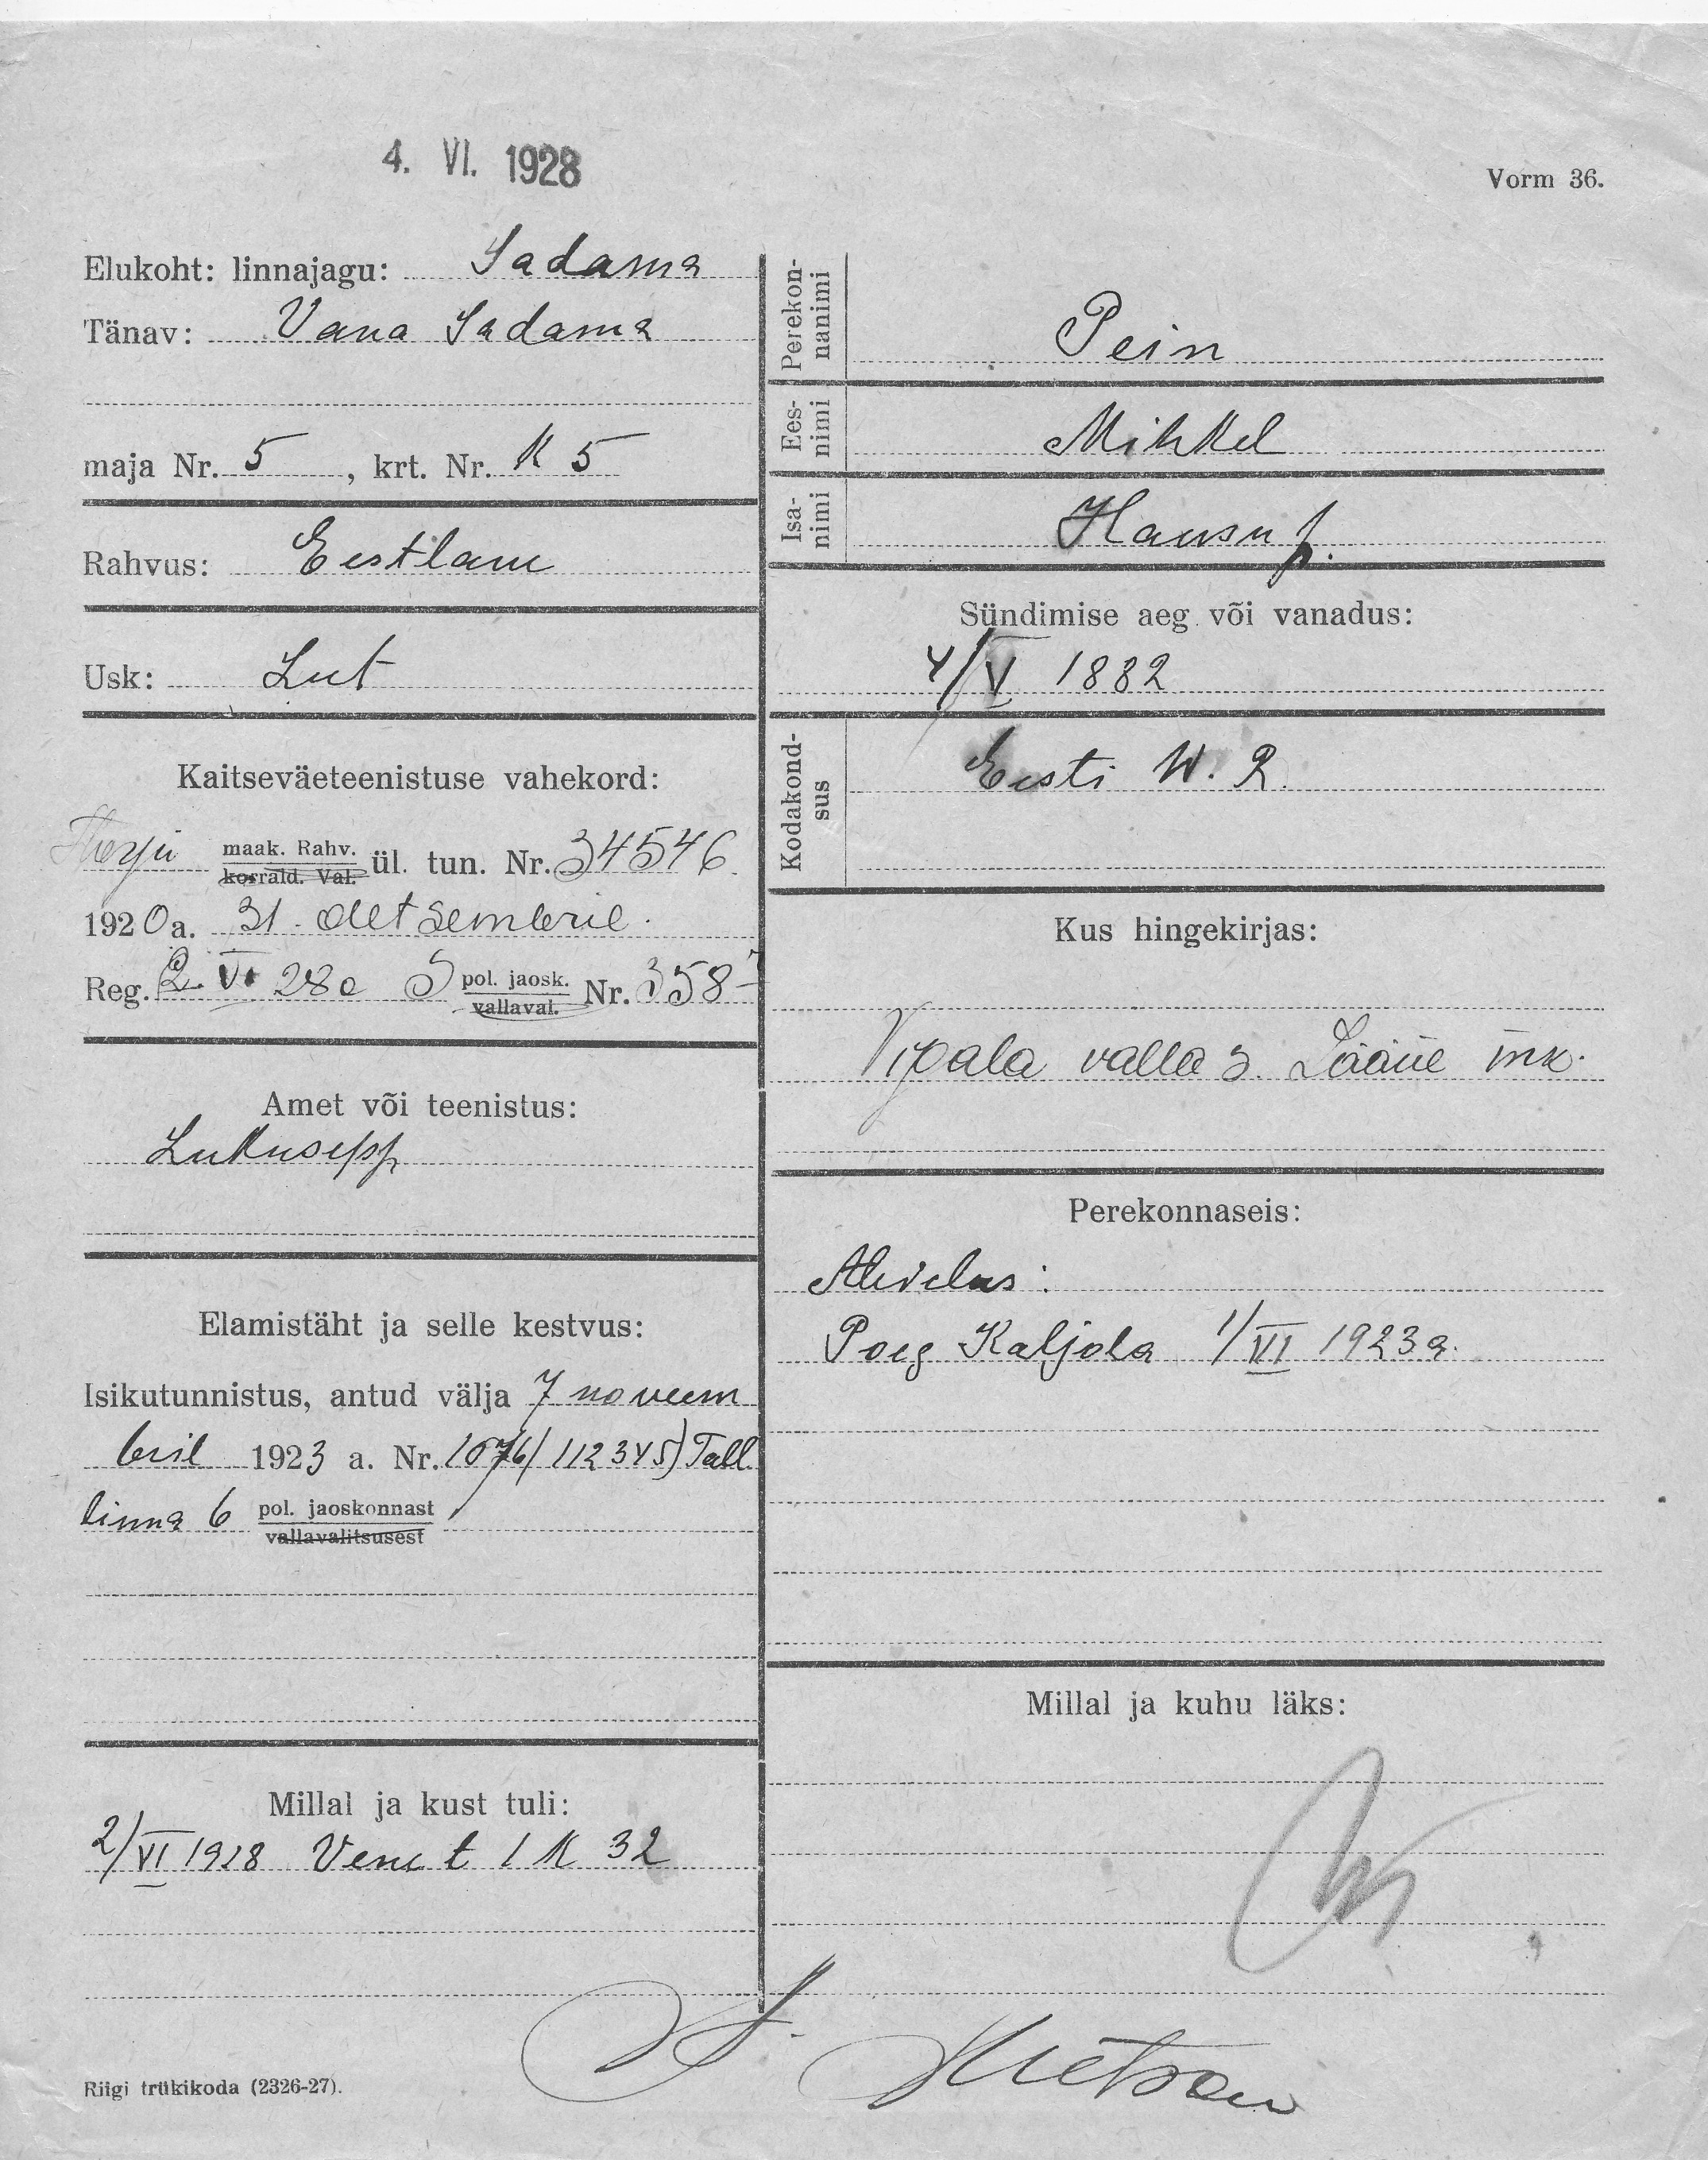 4. VI. 1928
Vorm 36.
Elukoht: linnajagu: Sadama
Tänav: Vana Sadama
maja Nr. 5, krt. Nr. K 5
Rahvus: Eestlane
Usk: Lut
Kaitseväeteenistuse vahekord:
Harju maak. Rahv. korrald. Val. ül. tun. Nr. 34546.
1920 a. 31. detsembril.
Reg. 2. VI 28 a 5 pol. jaosk. vallaval. Nr. 358
Amet või teenistus:
Lukusepp
Elamistäht ja selle kestvus:
Isikutunnistus, antud välja 7 noveem
bril 1923 a. Nr. 1076/112345) Tall
linna 6 pol. jaoskonnast
vallavalitsusest
Millal ja kust tuli:
2/VI 1928 Vene t 1 K 32
Perekon-
nanimi
Pein
Ees-
nimi
Mihkel
Isa-
nimi
Hansu p.
Sündimise aeg või vanadus:
4/V 1882
Kodakond-
sus
Eesti W. R.
Kus hingekirjas:
Vigala vallas. Lääne mk.
Perekonnaseis:
Abielus:
Poeg Kaljola 1/VI 1923 a.
Millal ja kuhu läks:
Riigi trükikoda (2326-27).